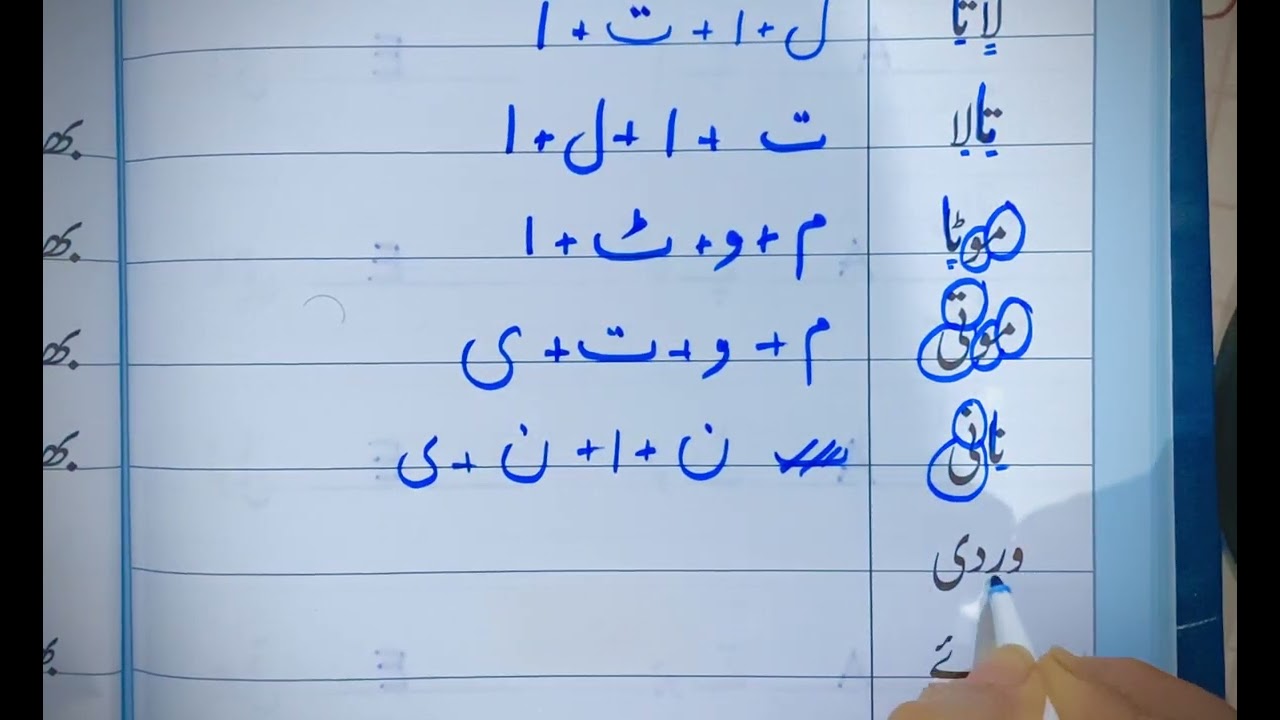 لاتا ل+ا+ت+ا
تالا ت+ا+ل+ا
موٹا م+و+ٹ+ا
موتی م+و+ت+ی
نانی ن+ا+ن+ی
وردی